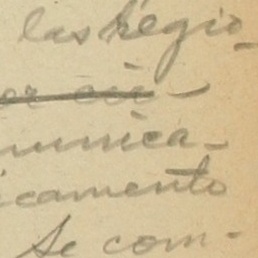 las Regio-
er cii-
munica-
icamento
Se com-